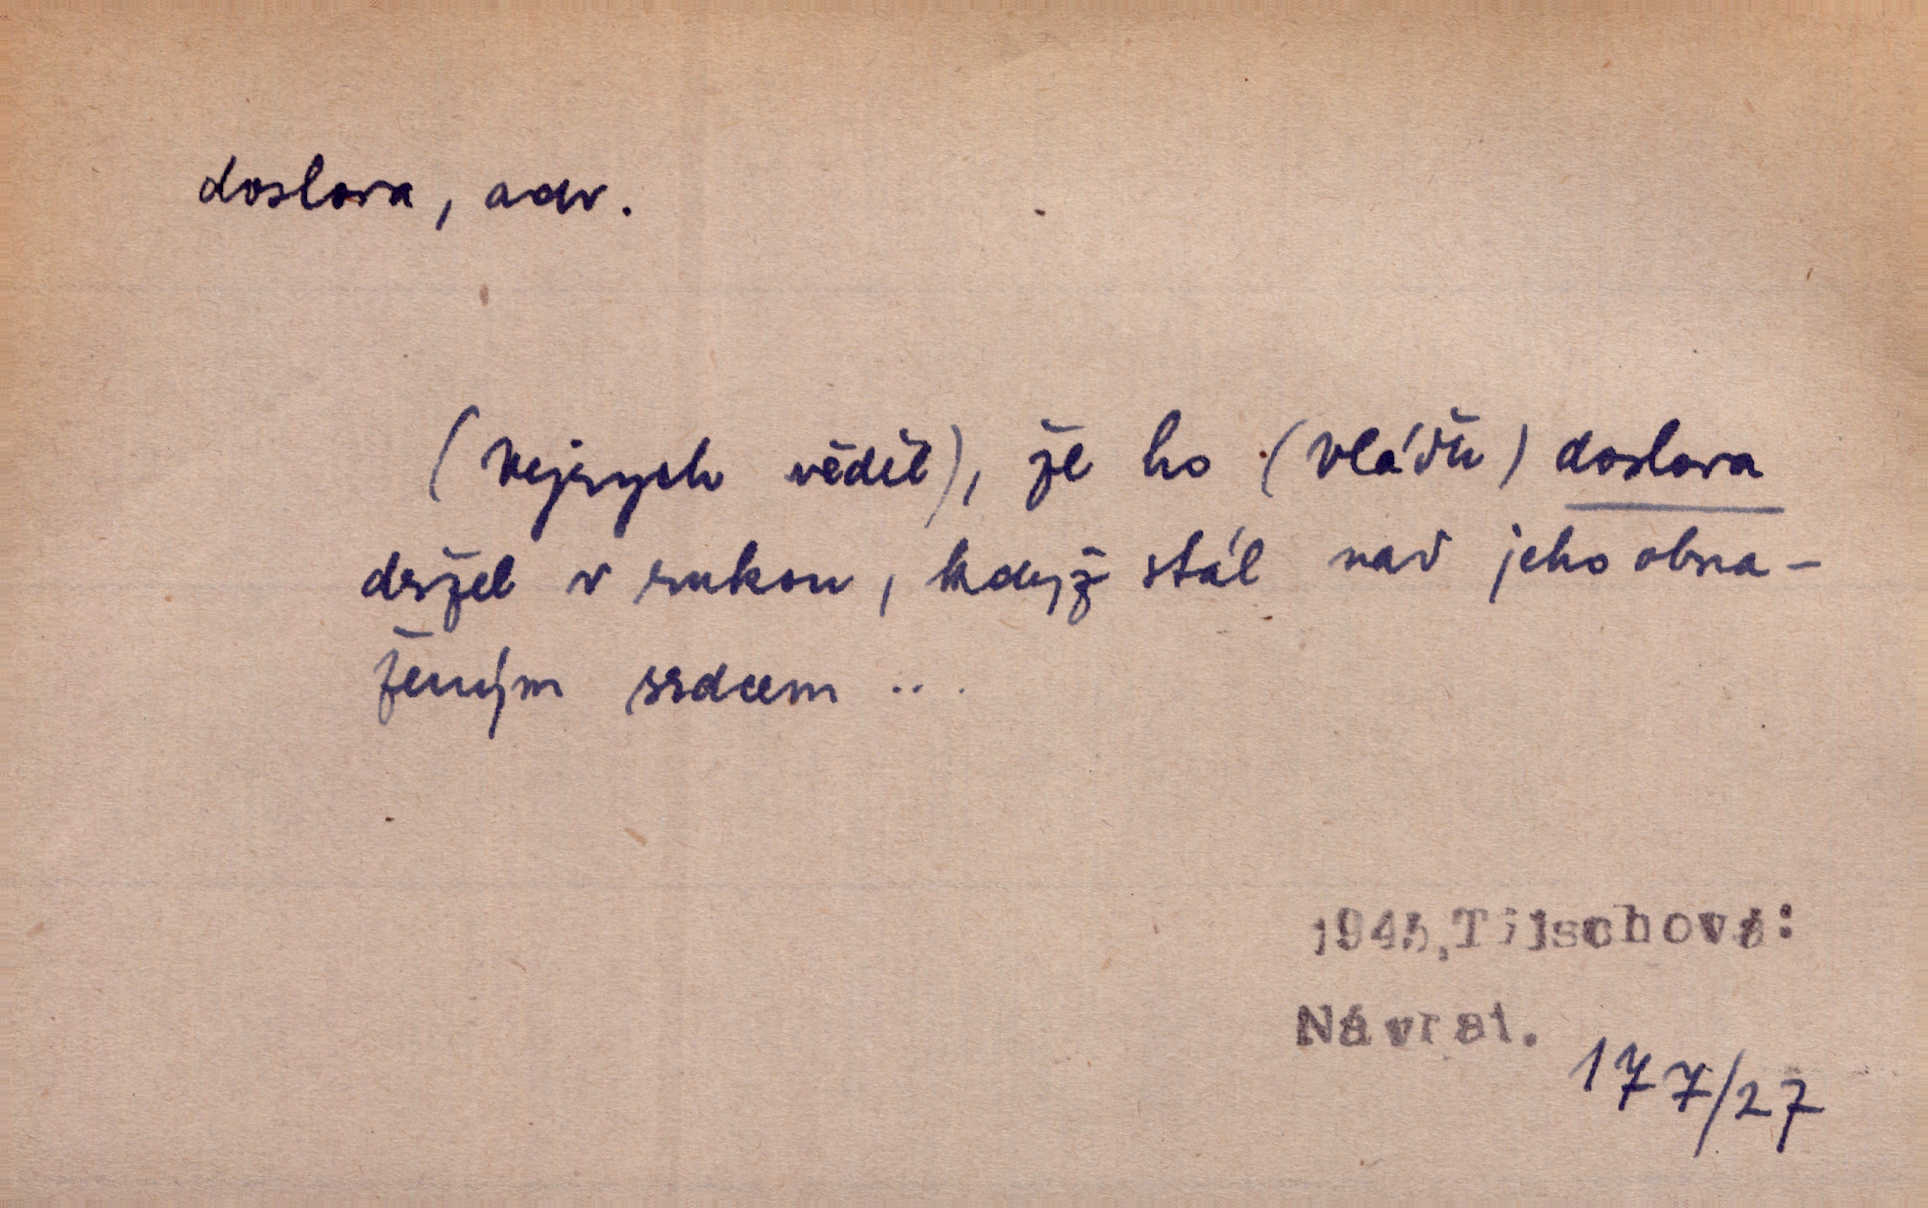 doslova, adv.
(Vejrych věděl), že ho (vládu) doslova
držel v rukou, když stál nad jeho obna-
ženým srdcem ...
1945, Tilschová:
Návrat.
177/27